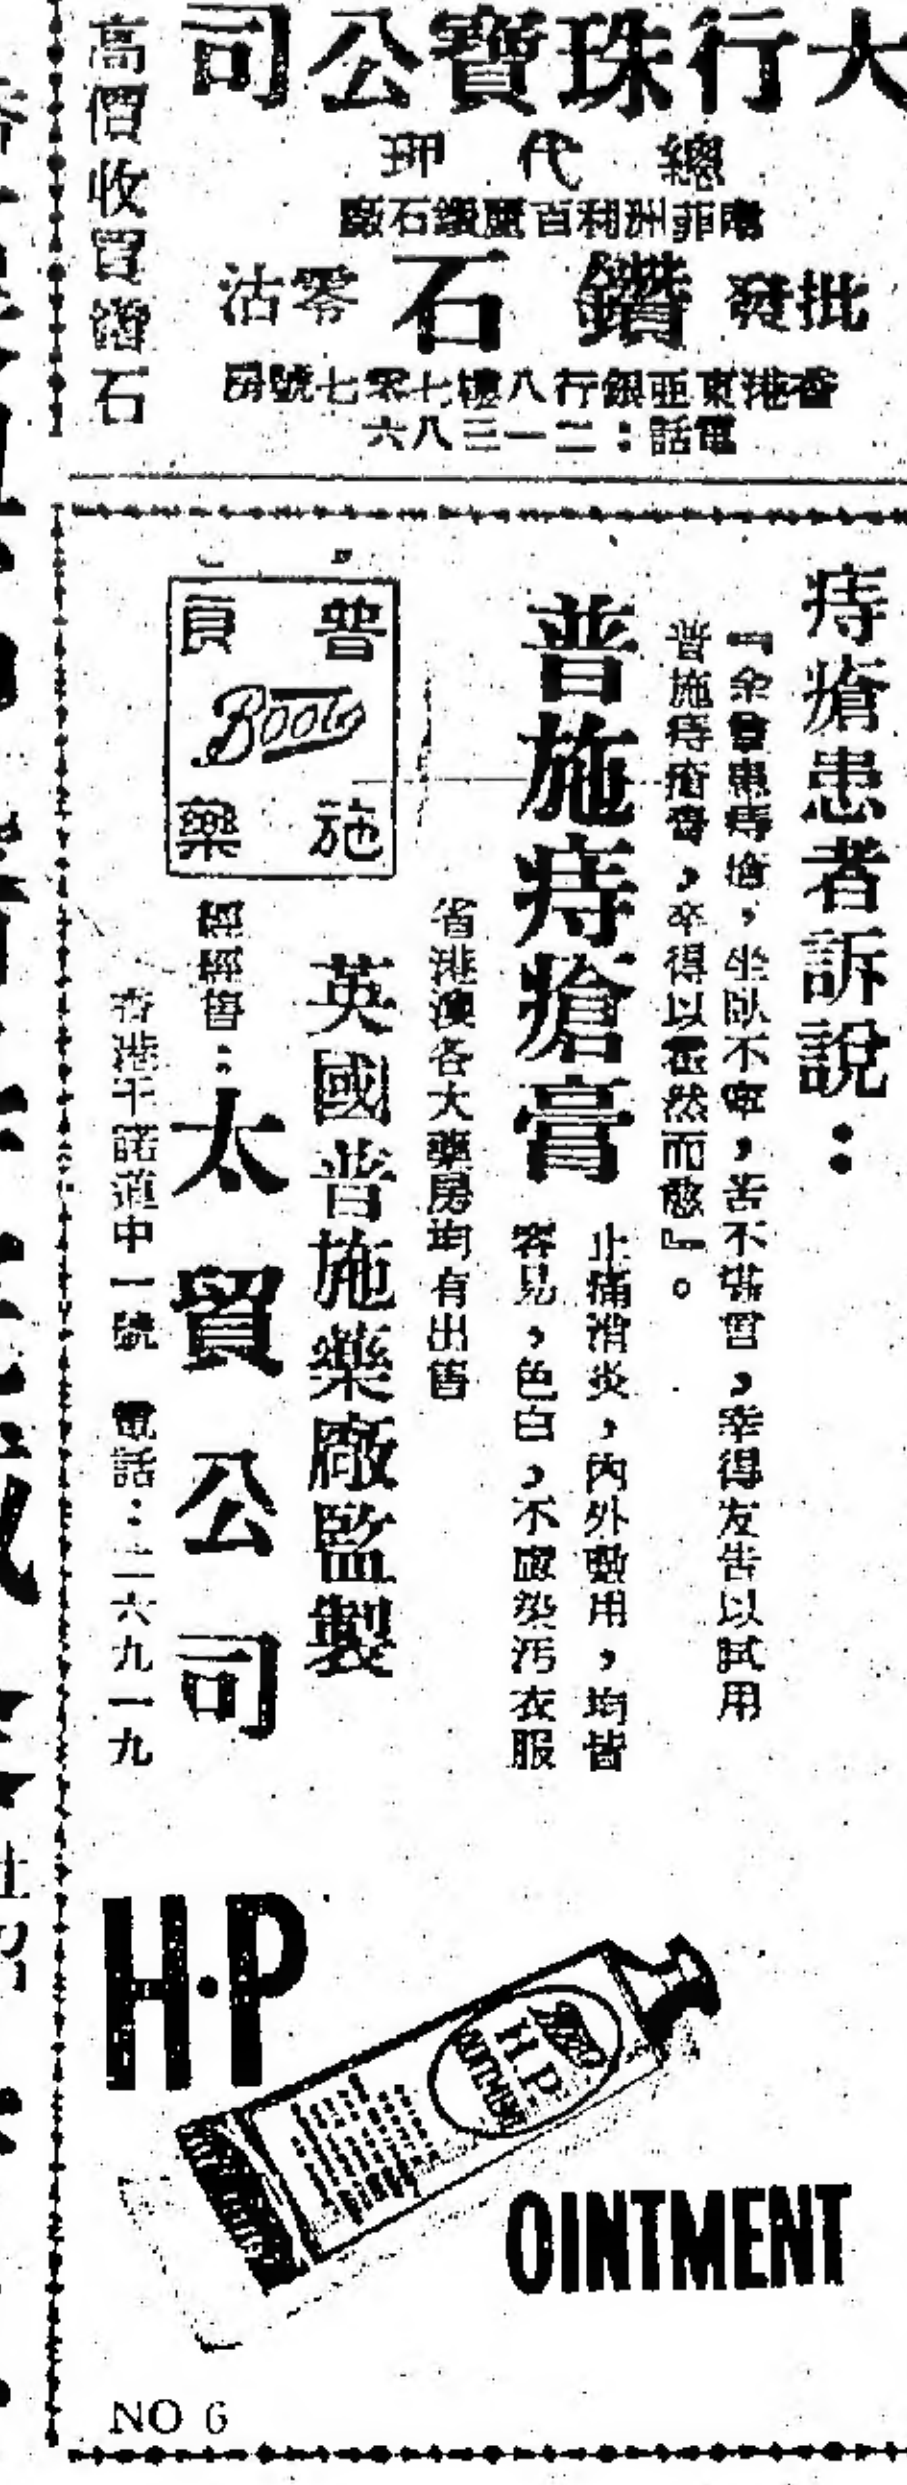 大行珠寶公司
總代理
南菲洲利百蘭鑽石廠
批發 鑽石 零沽
香港東亞銀行八樓七零七號房
電話：二一三八六
高價收買鑽石
痔瘡患者訴說：
『余曾患痔瘡，坐臥不寧，苦不堪言，幸得友告以試用
普施痔瘡膏，卒得以霍然而愈』。
普施痔瘡膏
止痛消炎，內外敷用，均皆
容見，色白，不虞染污衣服
省港澳各大藥房均有出售
普施
Boots
良藥
英國普施藥廠監製
經售：太貿公司
香港干諾道中一號 電話：二六九一九
H·P
Boots
H.P.
OINTMENT
OINTMENT
NO 6